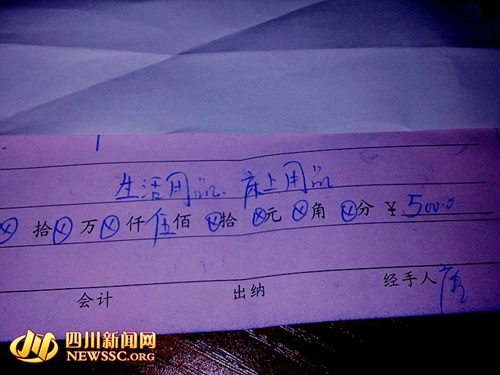 生活用品、床上用品
ⓧ 拾 ⓧ 万 ⓧ 仟 伍 佰 ⓧ 拾 ⓧ 元 ⓧ 角 ⓧ 分 ¥ 500.0
会计 出纳 经手人
四川新闻网
NEWSSC.ORG